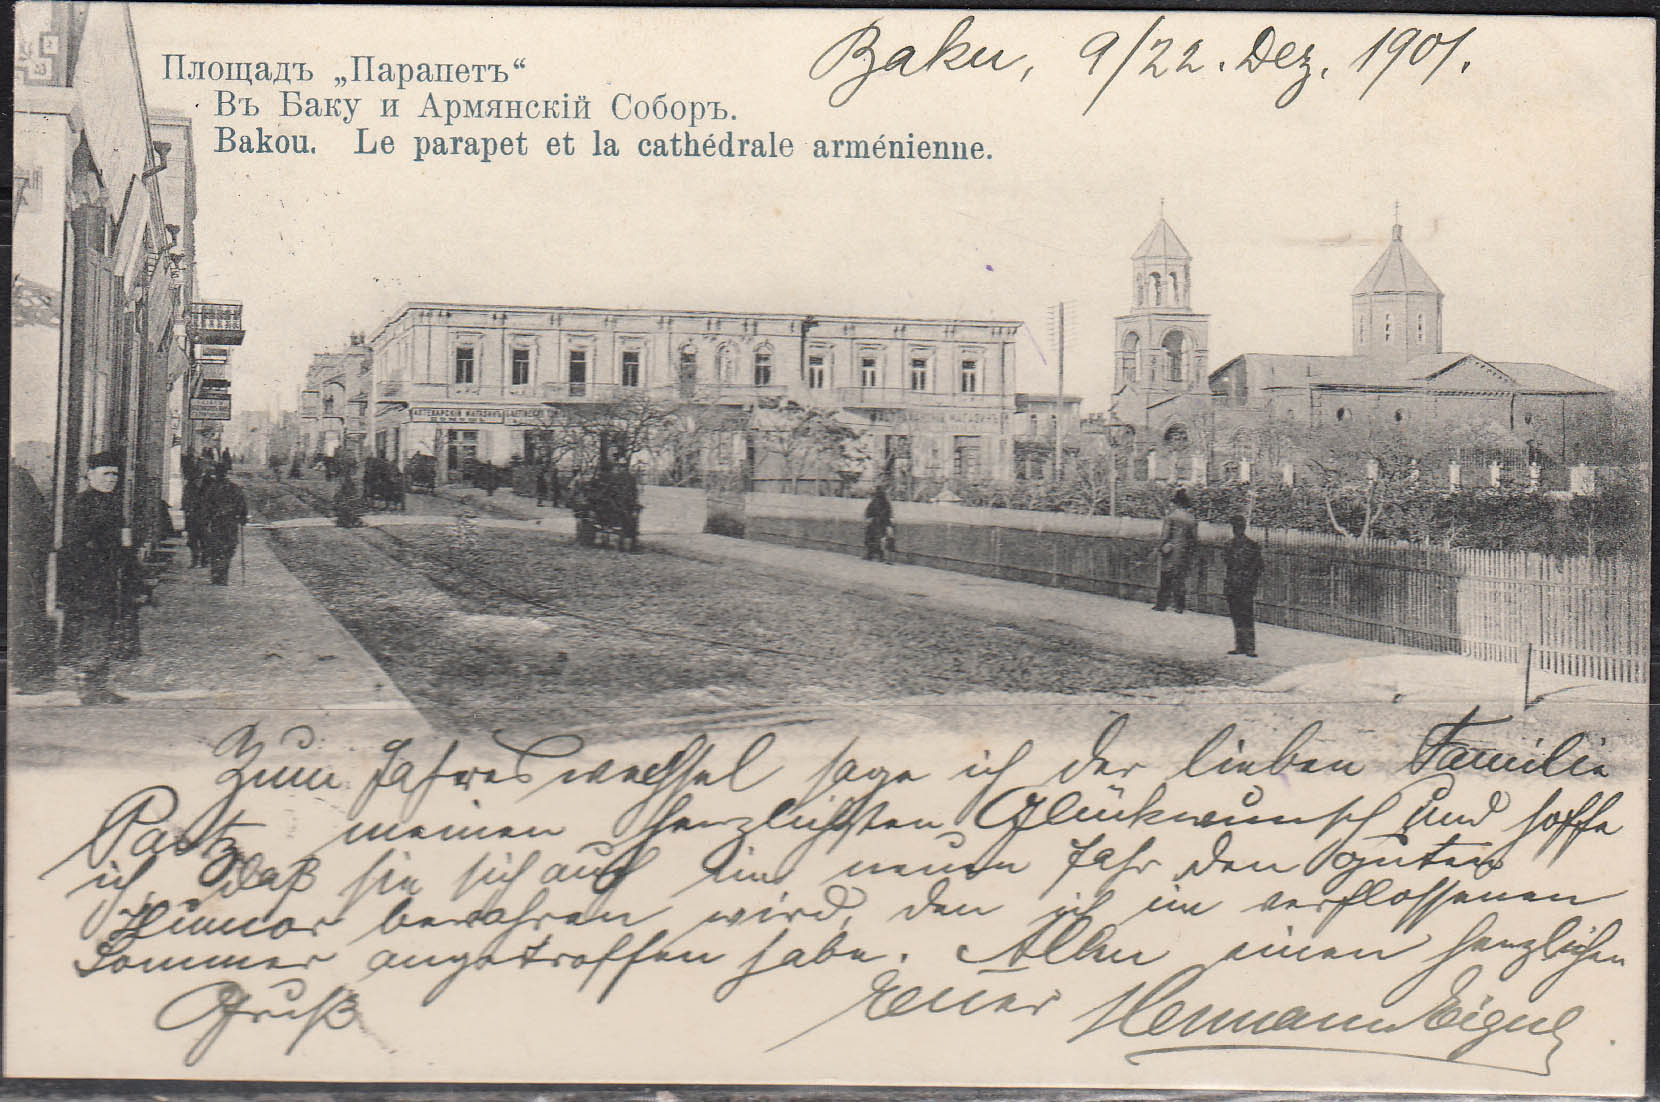 Baku, 9/22. Dez. 1901.
Площадъ „Парапетъ“
Въ Баку и Армянскій Соборъ.
Bakou. Le parapet et la cathédrale arménienne.
Zum Jahreswechsel sage ich der lieben Familie
meinen herzlichsten Glückwunsch und hoffe
ich, daß sie sich auch im neuen Jahr den guten
Humor bewahren wird, den ich im verflossenen
Sommer angetroffen habe. Allen einen herzlichen
Gruß Euer Hermann